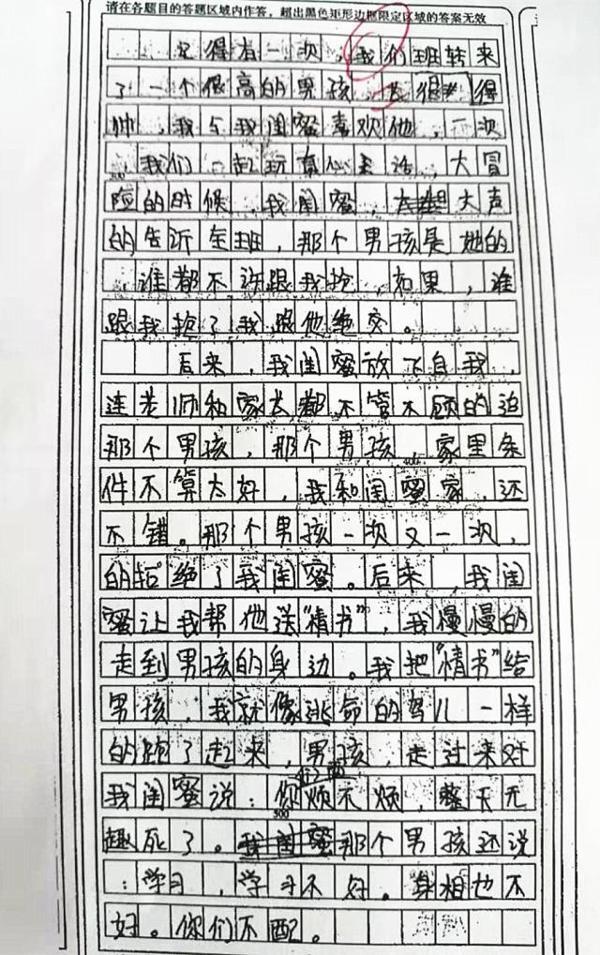 请在各题目的答题区域内作答，超出黑色矩形边框限定区域的答案无效
记得有一次，我们班转来
了一个很高的男孩，长得
帅，我与我闺蜜喜欢他，一次
，我们一起玩真心话，大冒
险的时候，我闺蜜，大声
的告诉全班，那个男孩是她的
，谁都不许跟我抢，如果，谁
跟我抢了我跟他绝交。
后来，我闺蜜放飞自我，
连老师和家长都不管不顾的追
那个男孩，那个男孩，家里条
400
件不算太好，我和闺蜜家，还
不错。那个男孩一次又一次，
的拒绝了我闺蜜。后来，我闺
蜜让我帮他送“情书”，我慢慢的
走到男孩的身边。我把“情书”给
男孩，我就像逃命的鸟儿一样
的跑了起来，男孩，走过来对
我闺蜜说：你烦不烦，整天无
500
趣死了。我闺蜜那个男孩还说
：学习，学习不好。真相也不
好。你们不配。